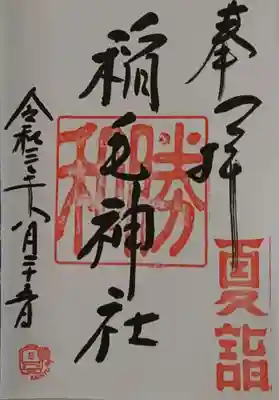 奉拝
夏詣
稲毛神社
勝
令和三年八月二十